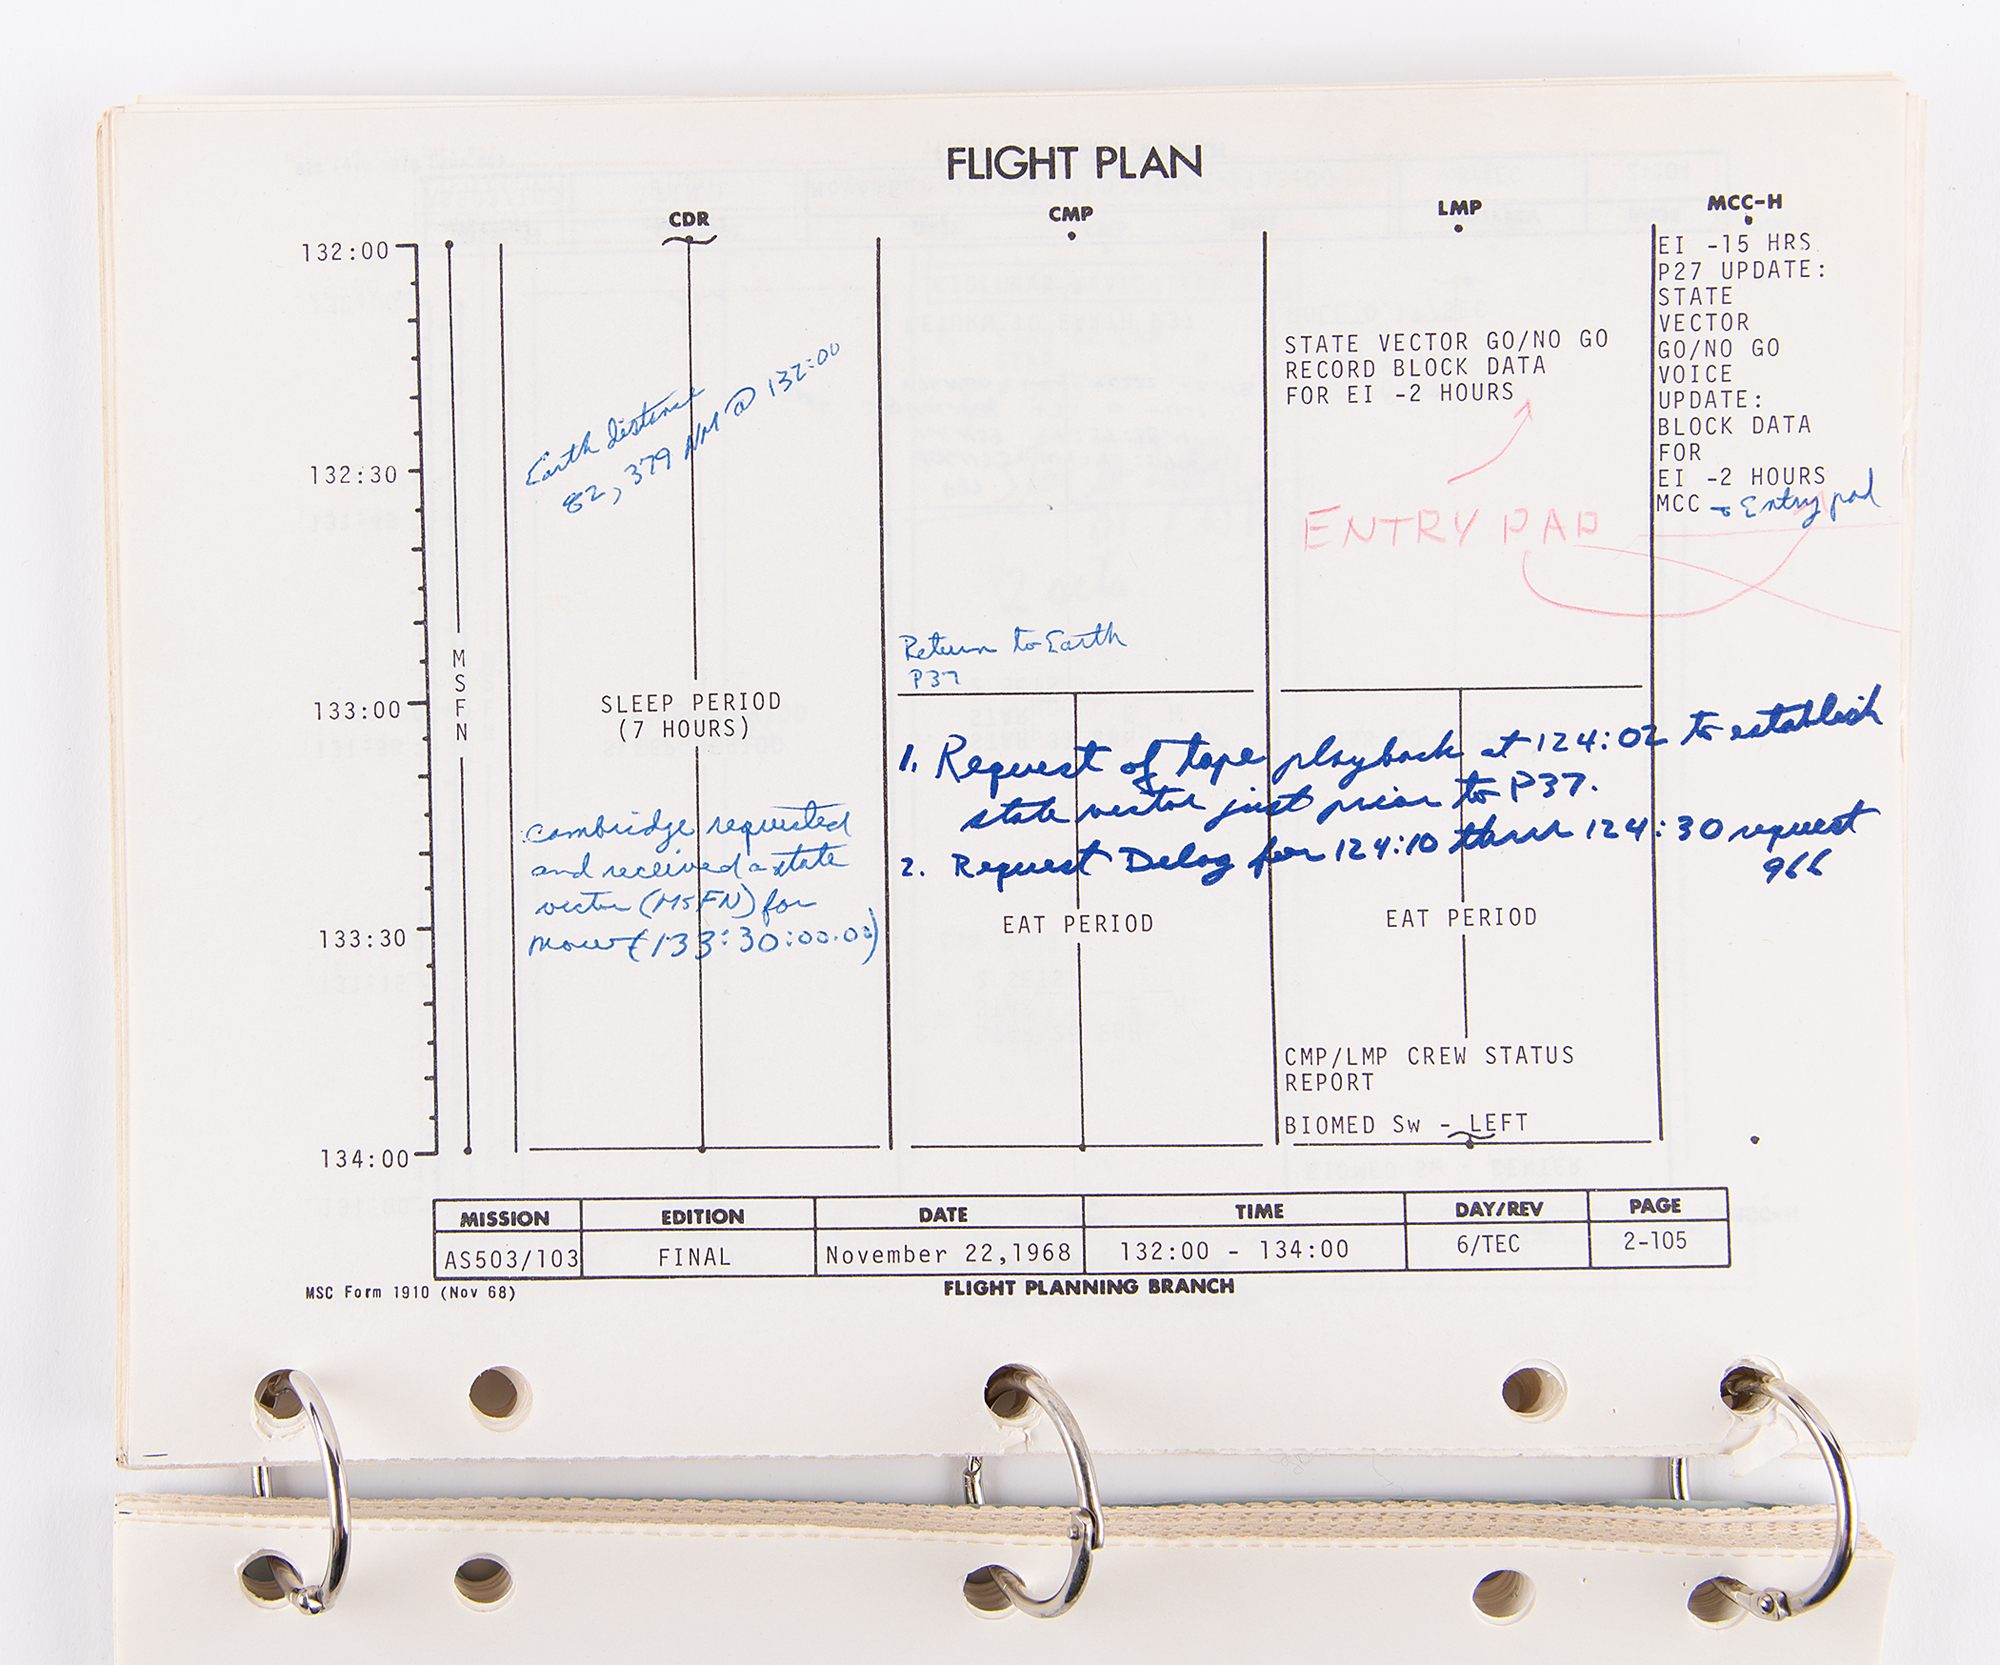 FLIGHT PLAN
CDR
CMP
LMP
MCC-H
132:00
132:30
133:00
133:30
134:00
M
S
F
N
Earth distance
82,379 NM @ 132:00
SLEEP PERIOD
(7 HOURS)
Cambridge requested
and received a state
vector (MSFN) for
(133:30:00.00)
Return to Earth
P37
1. Request of tape playback at 124:02 to establish
state vector just prior to P37.
2. Request Delog for 124:10 thru 124:30 request
966
EAT PERIOD
STATE VECTOR GO/NO GO
RECORD BLOCK DATA
FOR EI -2 HOURS
ENTRY PAD
EAT PERIOD
CMP/LMP CREW STATUS
REPORT
BIOMED Sw - LEFT
EI -15 HRS
P27 UPDATE:
STATE
VECTOR
GO/NO GO
VOICE
UPDATE:
BLOCK DATA
FOR
EI -2 HOURS
MCC - Entry pad
MISSION EDITION DATE TIME DAY/REV PAGE
AS503/103 FINAL November 22,1968 132:00 - 134:00 6/TEC 2-105
MSC Form 1910 (Nov 68)
FLIGHT PLANNING BRANCH